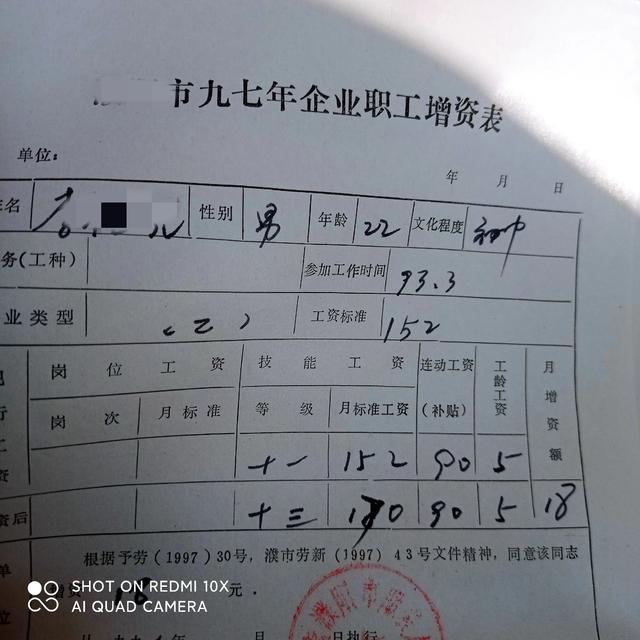 市九七年企业职工增资表
单位：
年 月 日
名 性别 男 年龄 22 文化程度 初中
务(工种) 参加工作时间 93.3
业类型 (二) 工资标准 152
岗位工资 技能工资 连动工资(补贴) 工龄工资 月增资额
岗次 月标准 等级 月标准工资
行
工
资 十一 152 90 5
资后 十三 170 90 5 18
单 根据予劳(1997)30号，濮市劳新(1997)43号文件精神，同意该同志
增资 18 元．
位 月 日执行
SHOT ON REDMI 10X
AI QUAD CAMERA